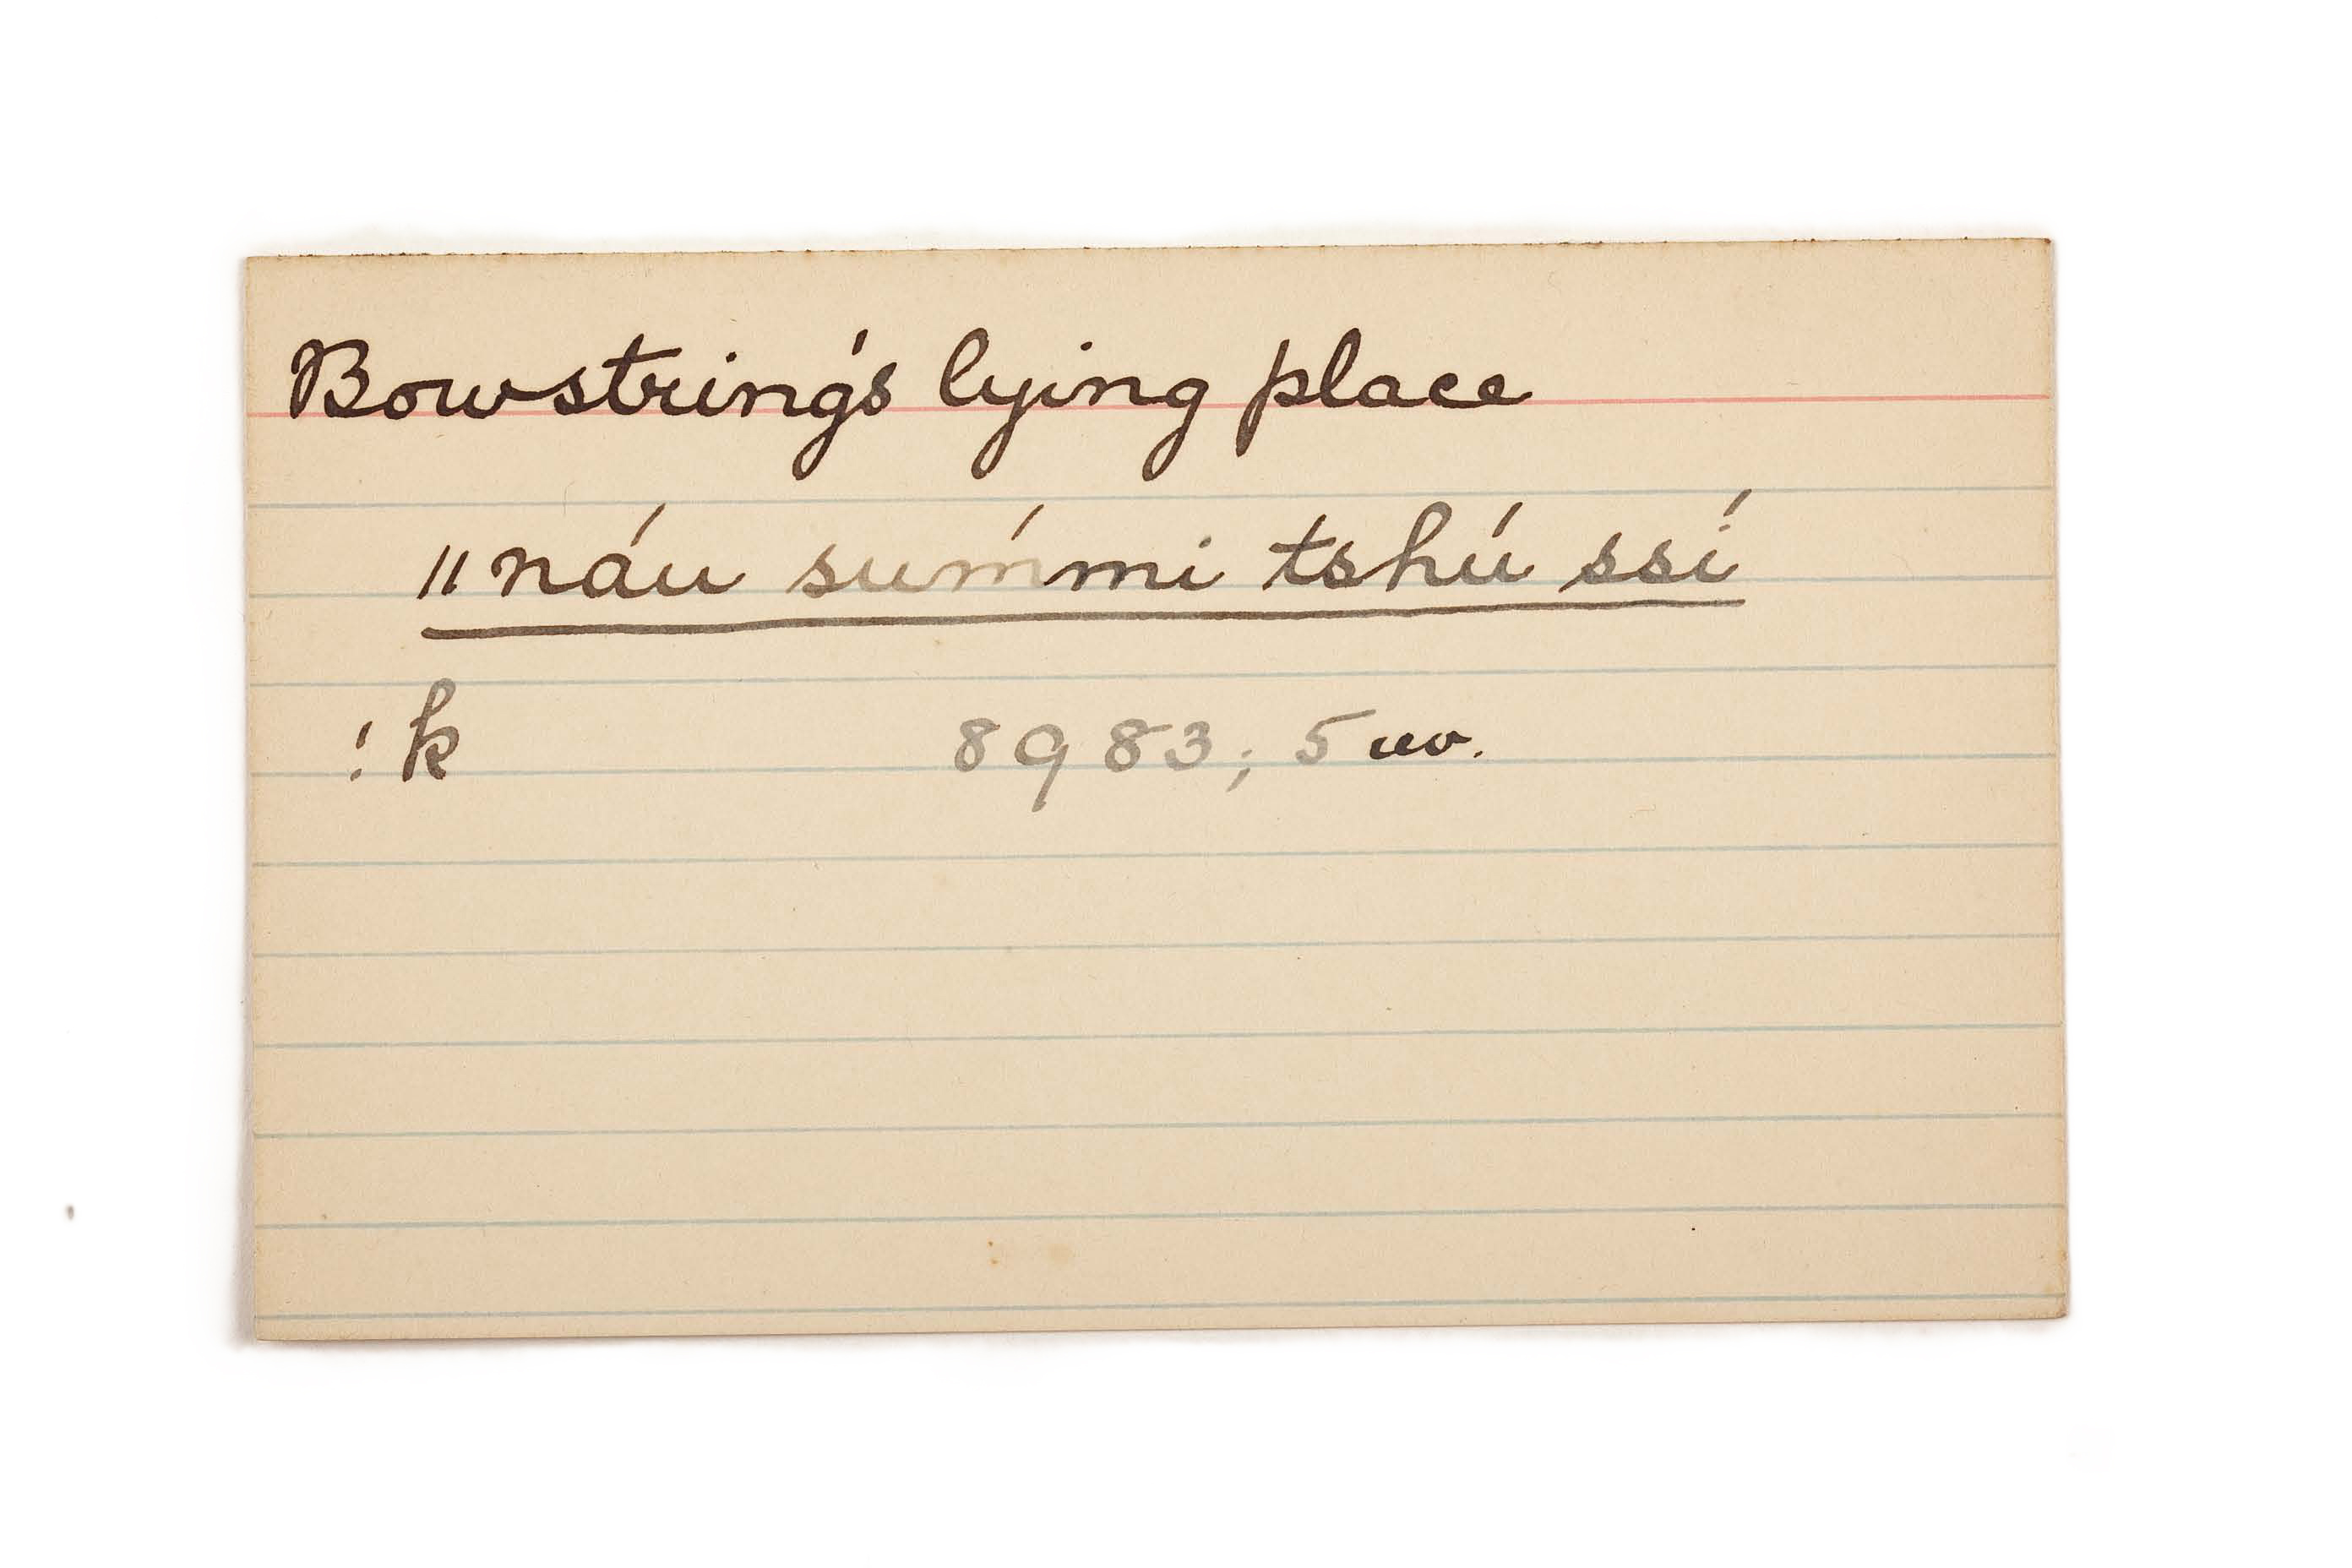 Bowstring's lying place
"náu sumḿi tshú ssí
!k 8983; 5 uv.